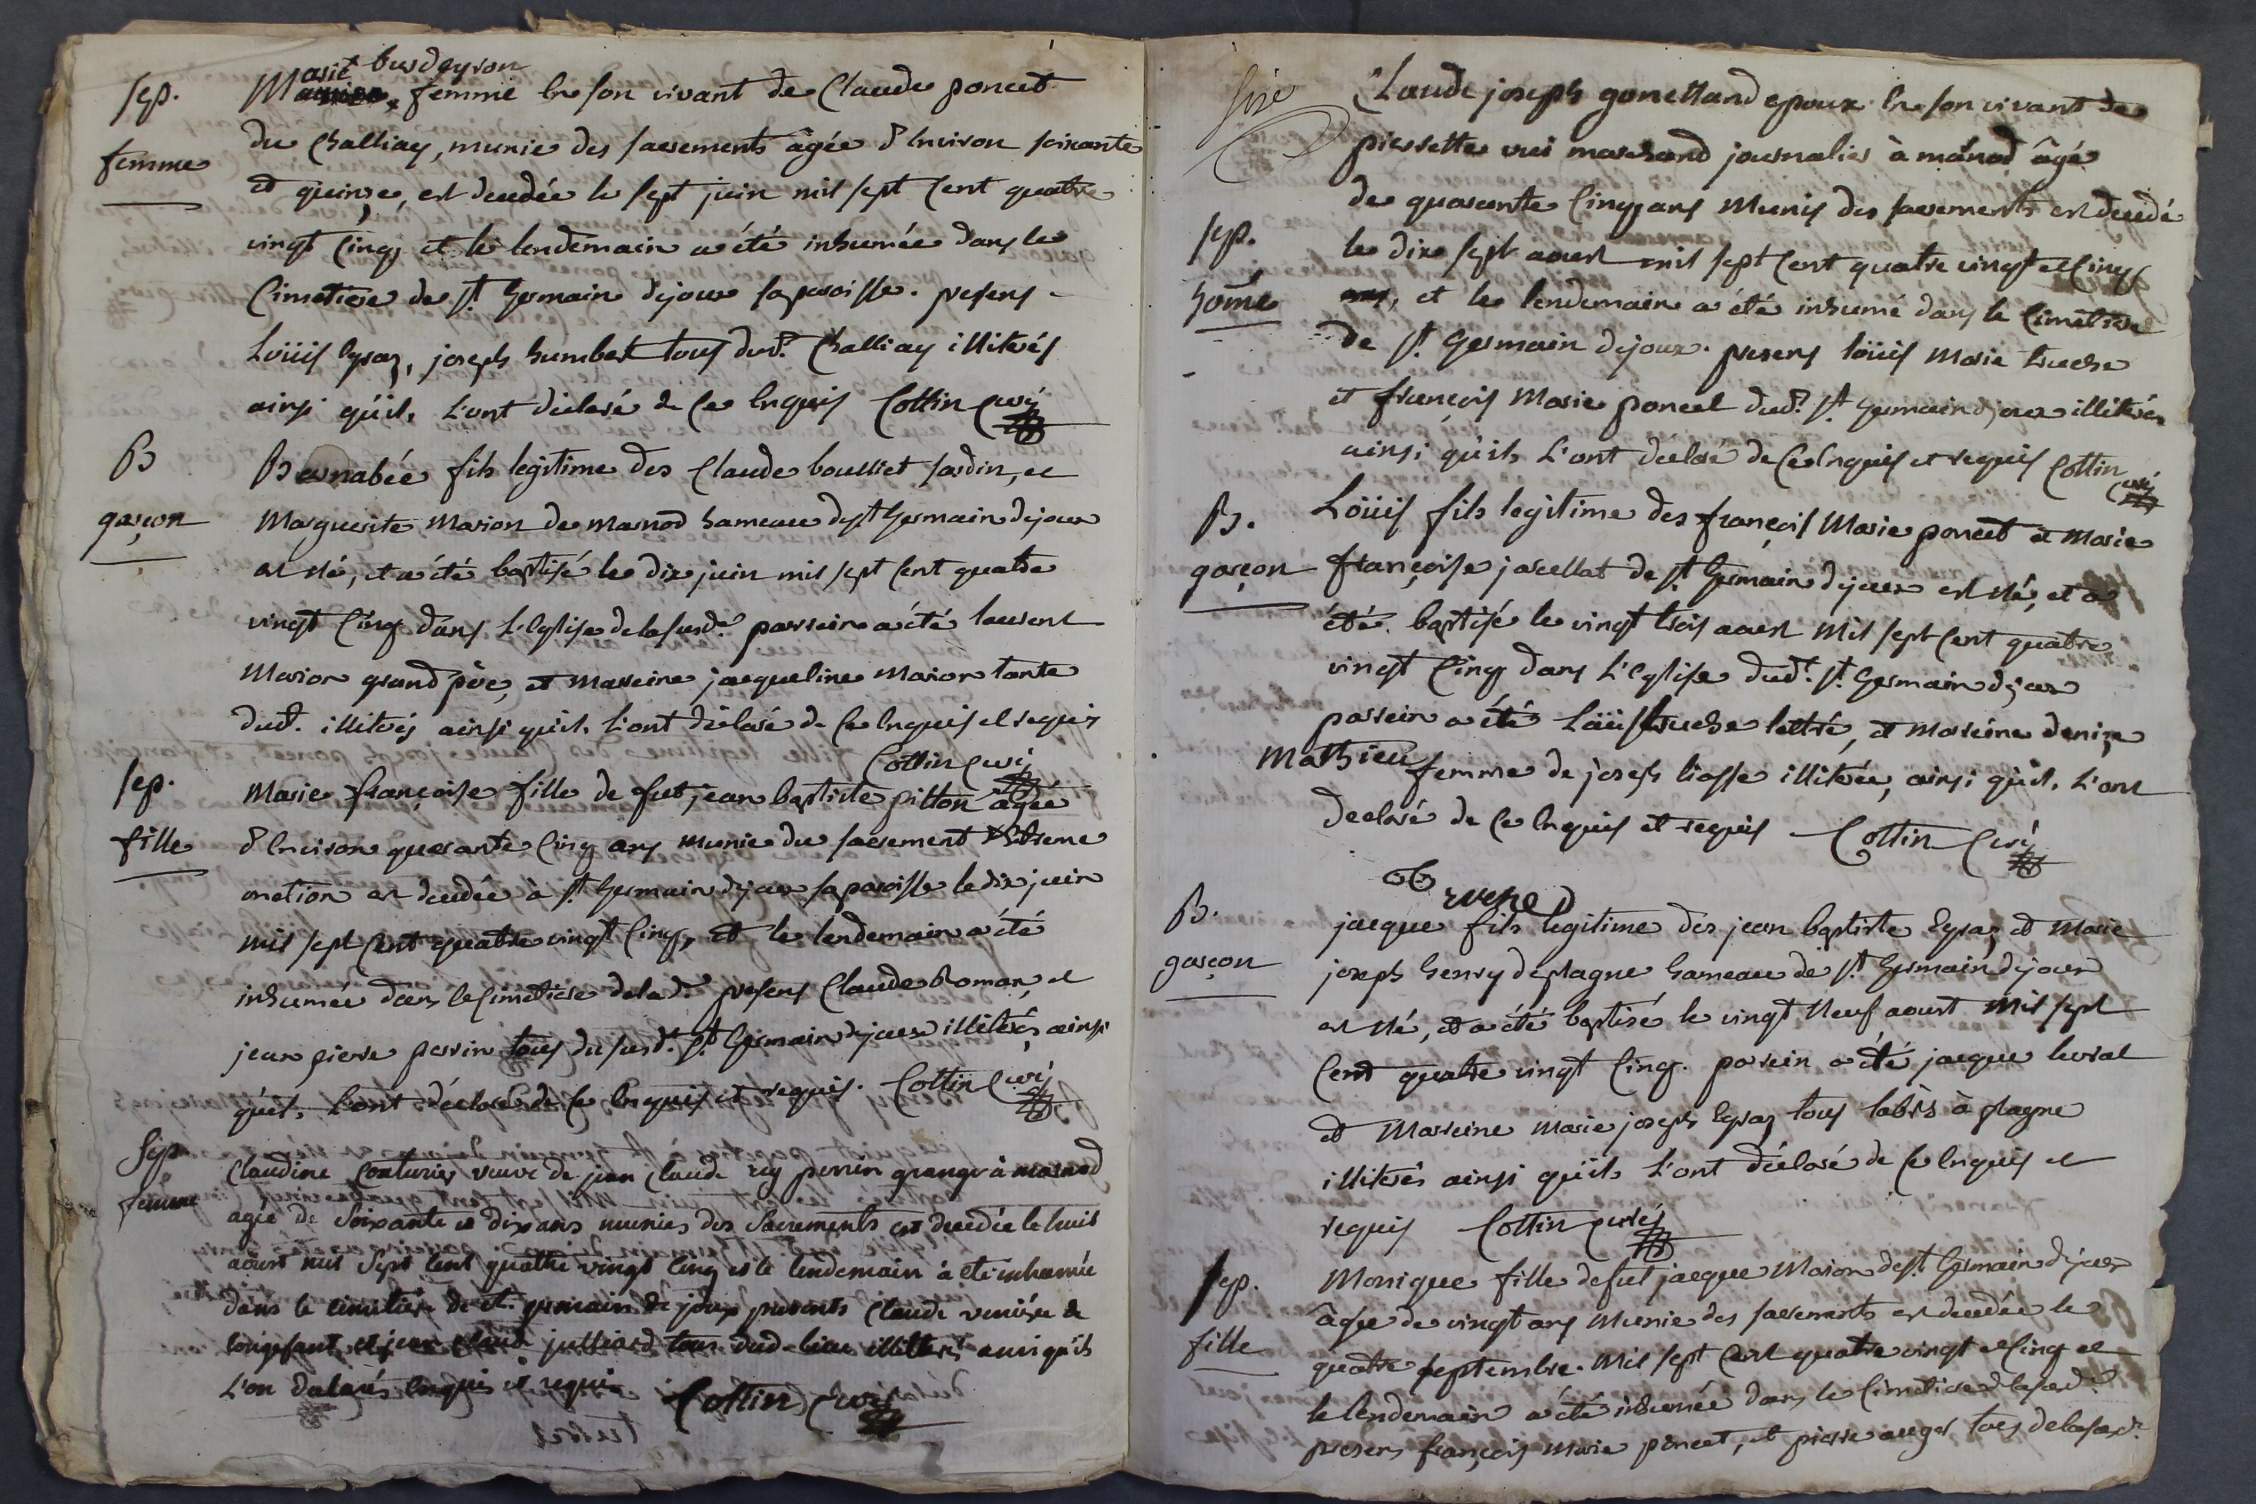 Marie burdeyron
sep. femme en son vivant de Claude poncet
femme du Challiay, munie des sacrements âgée d'environ soixante
et quinze, est decedée le sept juin mil sept cent quatre
vingt cinq et le lendemain a été inhumée dans le
Cimetiere de st Germain dejoux sa paroisse. presens
Loüis Egraz, joseph humbert tous dud.t Challiay illiterés
ainsi qu'ils l'ont déclaré de ce enquis Cottin curé
B Barnabée fils legitime des Claude bousset jardin, et
garçon Marguerite Marion de marnod hameau de st Germain dejoux
est né, et a été baptisé le dix juin mil sept cent quatre
vingt cinq dans l'Eglise de la susd.e parrein a été laurent
Marion grand pére, et Marreine jacqueline Marion tante
dud.t illiterés ainsi qu'ils l'ont déclaré de ce enquis et requis
Cottin curé
sep. Marie françoise fille de fut jean baptiste pitton âgée
fille d'environ quarante cinq ans munie du sacrement d'Extreme
onction est decedée à st Germain dejoux sa paroisse le dix juin
mil sept cent quatre vingt cinq, et le lendemain a été
inhumée dans le cimetiere de lad.e presens Claude Roman, et
jean pierre perrin tous du susd.t st Germain dejoux illiterés ainsi
qu'ils l'ont déclaré de ce enquis et requis. Cottin curé
Sep. Claudine Couturier veuve de jean Claude rey perrin granger à marnod
femme agée de Soixante et dix ans munies des Sacrements est decedée le huit
aoust mil Sept Cent quattre vingt cinq et le lendemain à ete inhumée
dans le cimitiére de st. germain de joux presents Claude
longefant, et jean Claude julliard tous dud lieu illitteré ainsi qu'ils
L'on dclarés enquis et requis Cottin Curé
Claude joseph gonettand epoux en son vivant de
pierrette vui marchand journalier à marnod âgé
de quarante cinq ans Munis des sacrements est decedé
sep. le dix sept aoust mil sept cent quatre vingt et cinq
home et le lendemain a été inhumé dans le Cimetiere
de st Germain dejoux. presens loüis Marie truche
et françois Marie poncet dud.t st Germain dejoux illiterés
ainsi qu'ils l'ont déclaré de ce enquis et requis Cottin curé
B. Loüis fils legitime des françois Marie poncet et Marie
garçon françoise jacellat de st Germain dejoux est né, et a
été baptisé le vingt trois aoust Mil sept cent quatre
vingt cinq dans l'Eglise dud.t st. Germain dejoux
parrein a été Loüis truche lettré, et Marreine denize
Mathieu femme de joseph liasse illiterée, ainsi qu'ils l'ont
declaré de ce enquis et requis Cottin Curé
B. jacque fils legitime des jean baptiste Egraz et Marie
garçon joseph henry de plagne hameau de st Germain dejoux
est né, et a été baptisé le vingt Neuf aoust Mil sept
Cent quatre vingt cinq. parrein a été jacque
et Marreine Marie joseph Egraz tous labrs à plagne
illiterés ainsi qu'ils l'ont déclaré de ce enquis et
requis Cottin curé
sep. Monique fille de fut jacque Marion de st Germain dejoux
fille âgée de vingt ans Munie des sacrements est decedée le
quatre septembre Mil sept cent quatre vingt et cinq et
le lendemain a été inhumée dans le Cimetiere de la sud.e
presens françois Marie poncet, et pierre auger tous de la susd.e